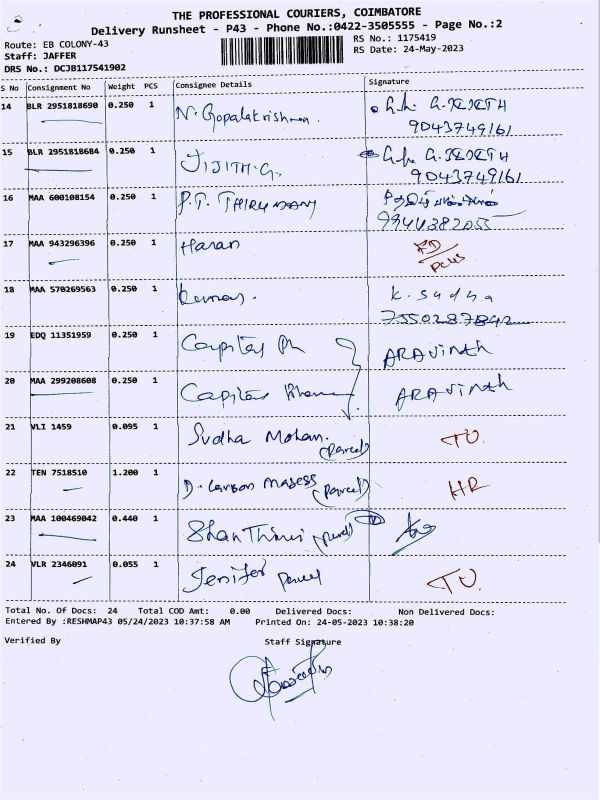 THE PROFESSIONAL COURIERS, COIMBATORE
Delivery Runsheet - P43 - Phone No.:0422-3505555 - Page No.:2
Route: EB COLONY-43 RS No.: 1175419
Staff: JAFFER RS Date: 24-May-2023
DRS No.: DCJB117541902
S No Consignment No Weight PCS Consignee Details Signature
14 BLR 2951818690 0.250 1 N. Gopalakrishnan.
9043749161
15 BLR 2951818684 0.250 1 JIJITH.G.
9043749161
16 MAA 600108154 0.250 1 P.T.
9944382055
17 MAA 943296396 0.250 1 Haran
18 MAA 570269563 0.250 1 Kumar. K. Sudha
7550287842
19 EDQ 11351959 0.250 1 ARAVINTH
20 MAA 299208608 0.250 1 ARAVINTH
21 VLI 1459 0.095 1 Sudha Mohan. (Parcel)
22 TEN 7518510 1.200 1 (Parcel) HR
23 MAA 100469042 0.440 1
24 VLR 2346091 0.055 1 Jenifer Parcel
Total No. Of Docs: 24 Total COD Amt: 0.00 Delivered Docs: Non Delivered Docs:
Entered By :RESHMAP43 05/24/2023 10:37:58 AM Printed On: 24-05-2023 10:38:20
Verified By Staff Signature